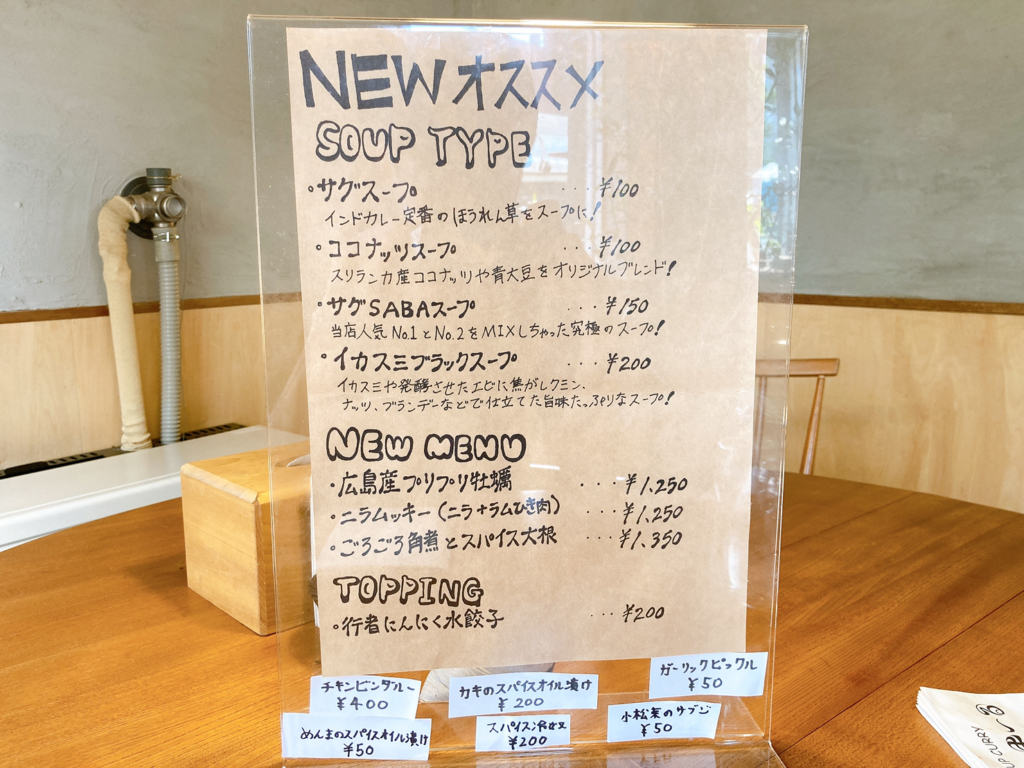 NEW オススメ
SOUP TYPE
・サグスープ ・・・¥100
インドカレー定番のほうれん草をスープに!
・ココナッツスープ ・・・¥100
スリランカ産ココナッツや青大豆をオリジナルブレンド!
・サグSABAスープ ・・・¥150
当店人気No.1とNo.2をMIXしちゃった究極のスープ!
・イカスミブラックスープ ・・・¥200
イカスミや発酵させたエビに焦がしクミン、
ナッツ、ブランデーなどで仕立てた旨味たっぷりなスープ!
NEW MENU
・広島産プリプリ牡蠣 ・・・¥1.250
・ニラムッキー(ニラ+ラムひき肉) ・・・¥1.250
・ごろごろ角煮とスパイス大根 ・・・¥1.350
TOPPING
・行者にんにく水餃子 ・・・¥200
チキンビンダルー
¥400
カキのスパイスオイル漬け
¥200
ガーリックピックル
¥50
めんまのスパイスオイル漬け
¥50
スパイス冷奴
¥200
小松菜のサブジ
¥50
CURRY